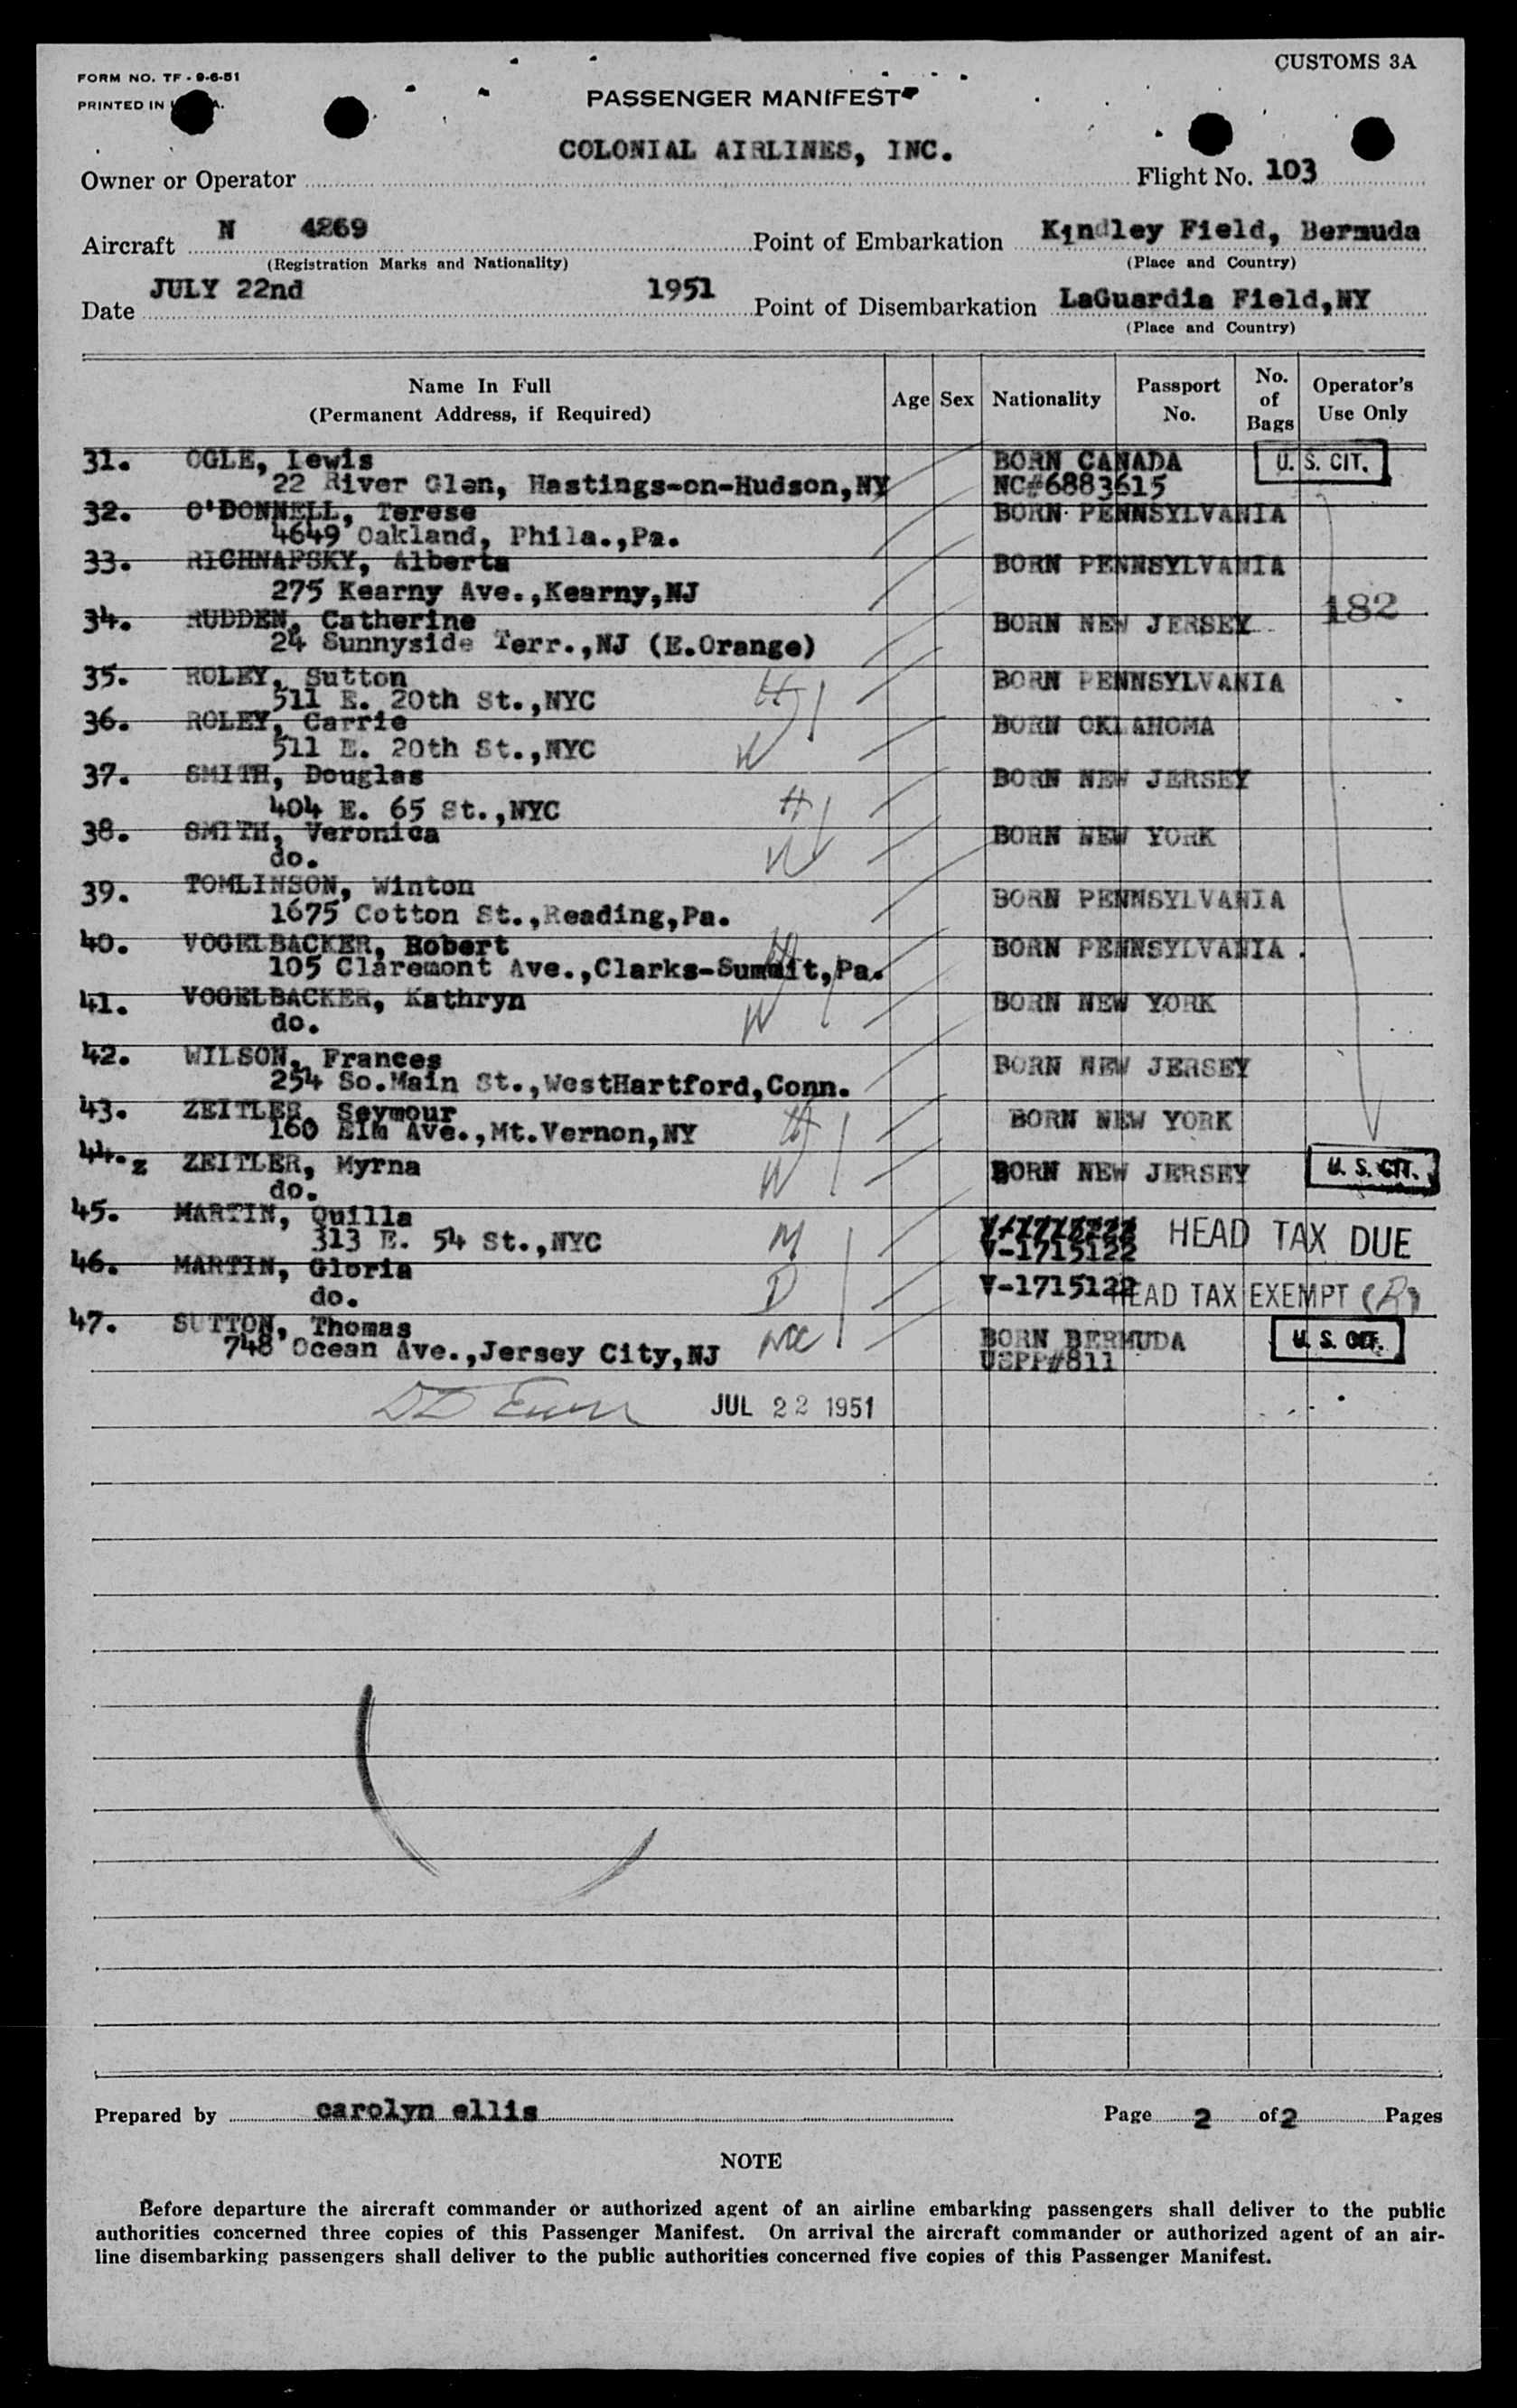 CUSTOMS 3A
FORM NO. TF - 9-6-51
PRINTED IN
PASSENGER MANIFEST
COLONIAL AIRLINES, INC.
Owner or Operator
Flight No. 103
Aircraft N 4269
Point of Embarkation Kindley Field, Bermuda
(Registration Marks and Nationality)
(Place and Country)
Date JULY 22nd 1951
Point of Disembarkation LaGuardia Field,NY
(Place and Country)
Name In Full
(Permanent Address, if Required)
Age Sex Nationality
Passport No.
No. of Bags
Operator's Use Only
31. OGLE, Lewis BORN CANADA U. S. CIT.
22 River Glen, Hastings-on-Hudson,NY NC#6883615
32. O'DONNELL, Terese BORN PENNSYLVANIA
4649 Oakland, Phila.,Pa.
33. RICHNAFSKY, Alberta BORN PENNSYLVANIA
275 Kearny Ave.,Kearny,NJ 182
34. RUDDEN, Catherine BORN NEW JERSEY
24 Sunnyside Terr.,NJ (E.Orange)
35. ROLEY, Sutton BORN PENNSYLVANIA
511 E. 20th St.,NYC H
36. ROLEY, Carrie BORN OKLAHOMA
511 E. 20th St.,NYC W
37. SMITH, Douglas BORN NEW JERSEY
404 E. 65 St.,NYC H
38. SMITH, Veronica BORN NEW YORK
do. W
39. TOMLINSON, Winton BORN PENNSYLVANIA
1675 Cotton St.,Reading,Pa.
40. VOGELBACKER, Robert H BORN PENNSYLVANIA
105 Claremont Ave.,Clarks-Summit,Pa.
41. VOGELBACKER, Kathryn BORN NEW YORK
do. W
42. WILSON, Frances BORN NEW JERSEY
254 So.Main St.,WestHartford,Conn.
43. ZEITLER, Seymour BORN NEW YORK
160 Elm Ave.,Mt.Vernon,NY H
44.z ZEITLER, Myrna BORN NEW JERSEY U. S. CIT.
do. W
45. MARTIN, Quilla
313 E. 54 St.,NYC M V-1715122 HEAD TAX DUE
46. MARTIN, Gloria V-1715122 HEAD TAX EXEMPT (R)
do. D
47. SUTTON, Thomas BORN BERMUDA U. S. CIT.
748 Ocean Ave.,Jersey City,NJ USPP#811
JUL 22 1951
Prepared by carolyn ellis
Page 2 of 2 Pages
NOTE
Before departure the aircraft commander or authorized agent of an airline embarking passengers shall deliver to the public
authorities concerned three copies of this Passenger Manifest. On arrival the aircraft commander or authorized agent of an air-
line disembarking passengers shall deliver to the public authorities concerned five copies of this Passenger Manifest.